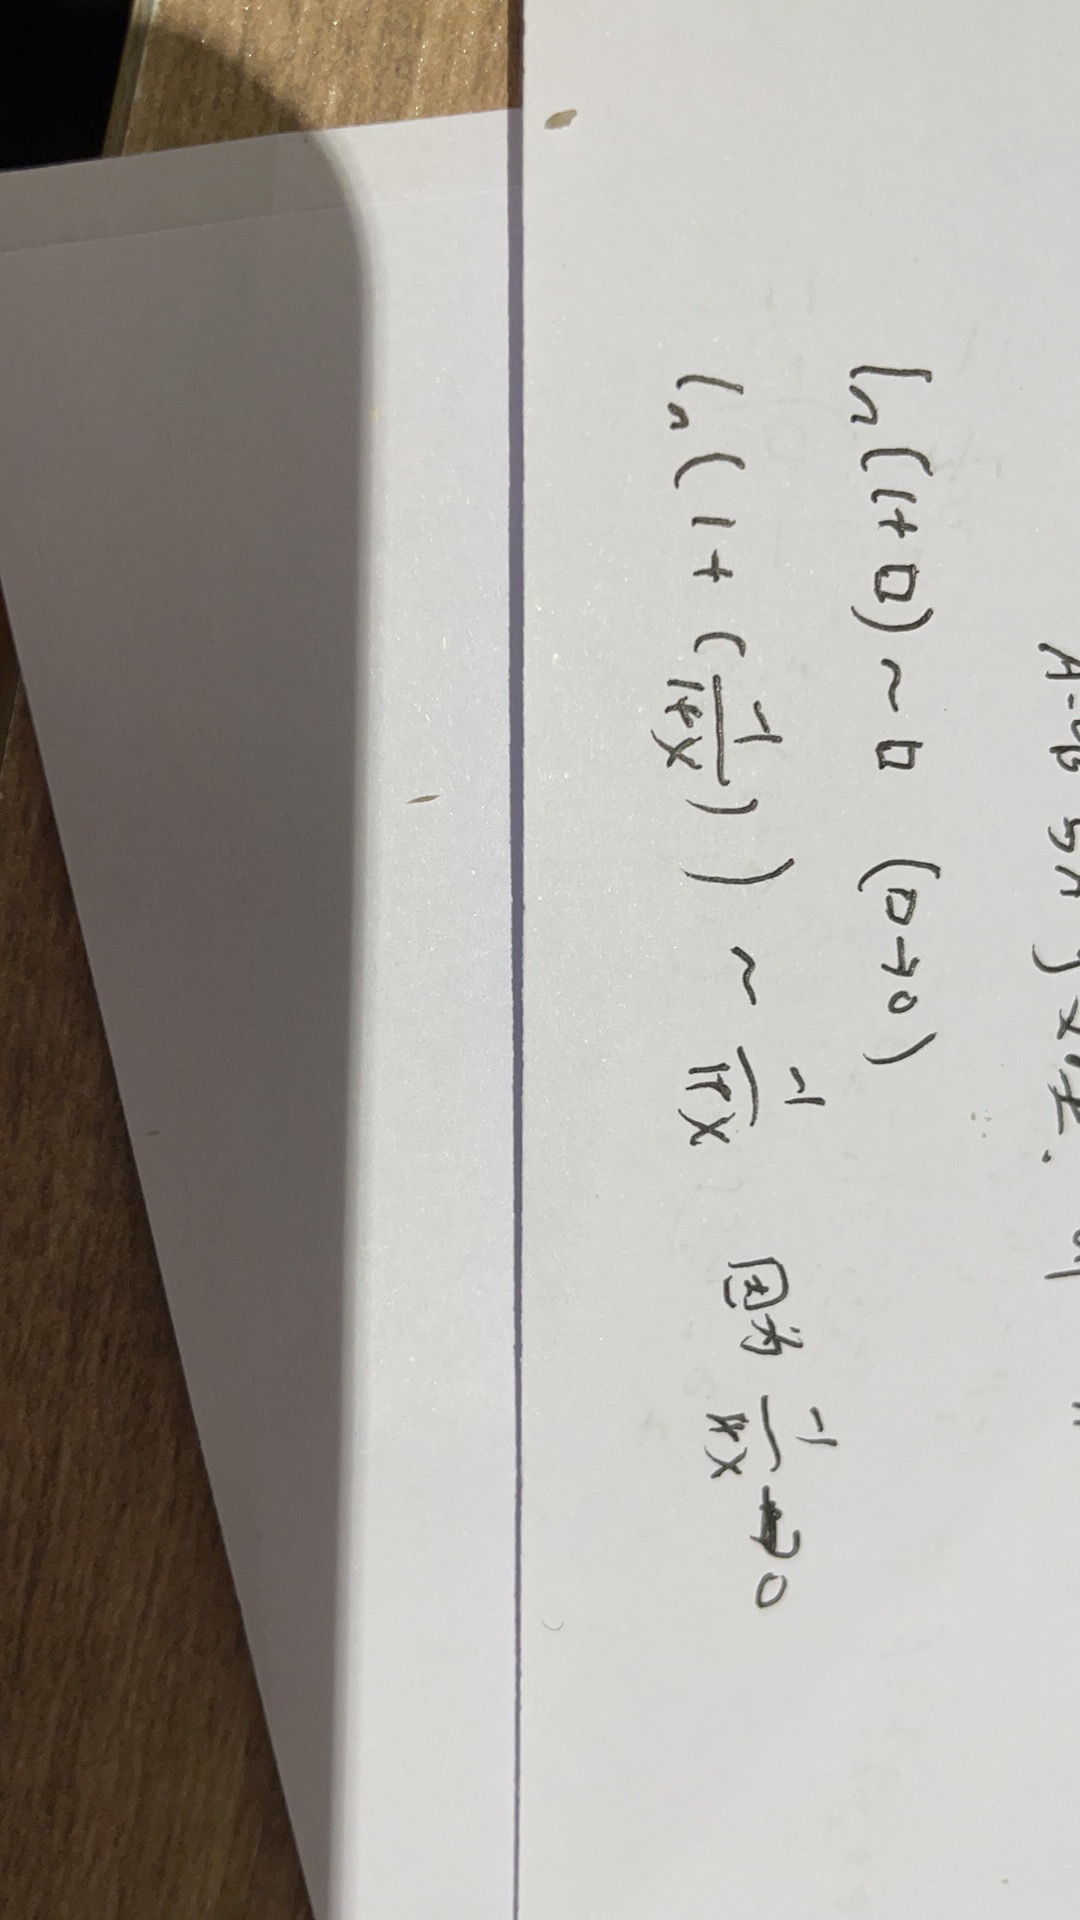 ln(1+□) ~ □ (□→0)
ln(1+(\frac{-1}{1+x})) ~ \frac{-1}{1+x} 因为 \frac{-1}{1+x} → 0